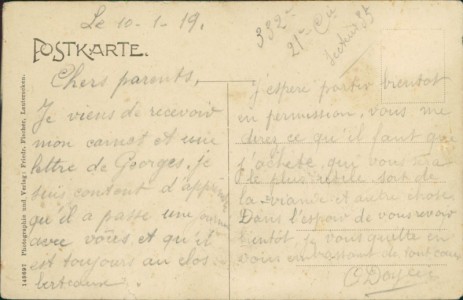 Le 10-1-19.
332e
21e Cie
Secteur 85
POSTKARTE.
Chers parents,
Je viens de recevoir
mon carnet et une
lettre de Georges. Je
suis content d'app
qu'il a passé une
avec vous et qu'il
est toujours au clos
berteaux.
J'espère partir bientot
en permission, vous me
direz ce qu'il faut que
j'achète, qui vous
le plus utile soit de
la viande et autre chose.
Dans l'espoir de vous revoir
bientôt, je vous quitte en
vous embrassant de tout coeur
Photographie und Verlag: Friedr. Fischer, Lauterecken.